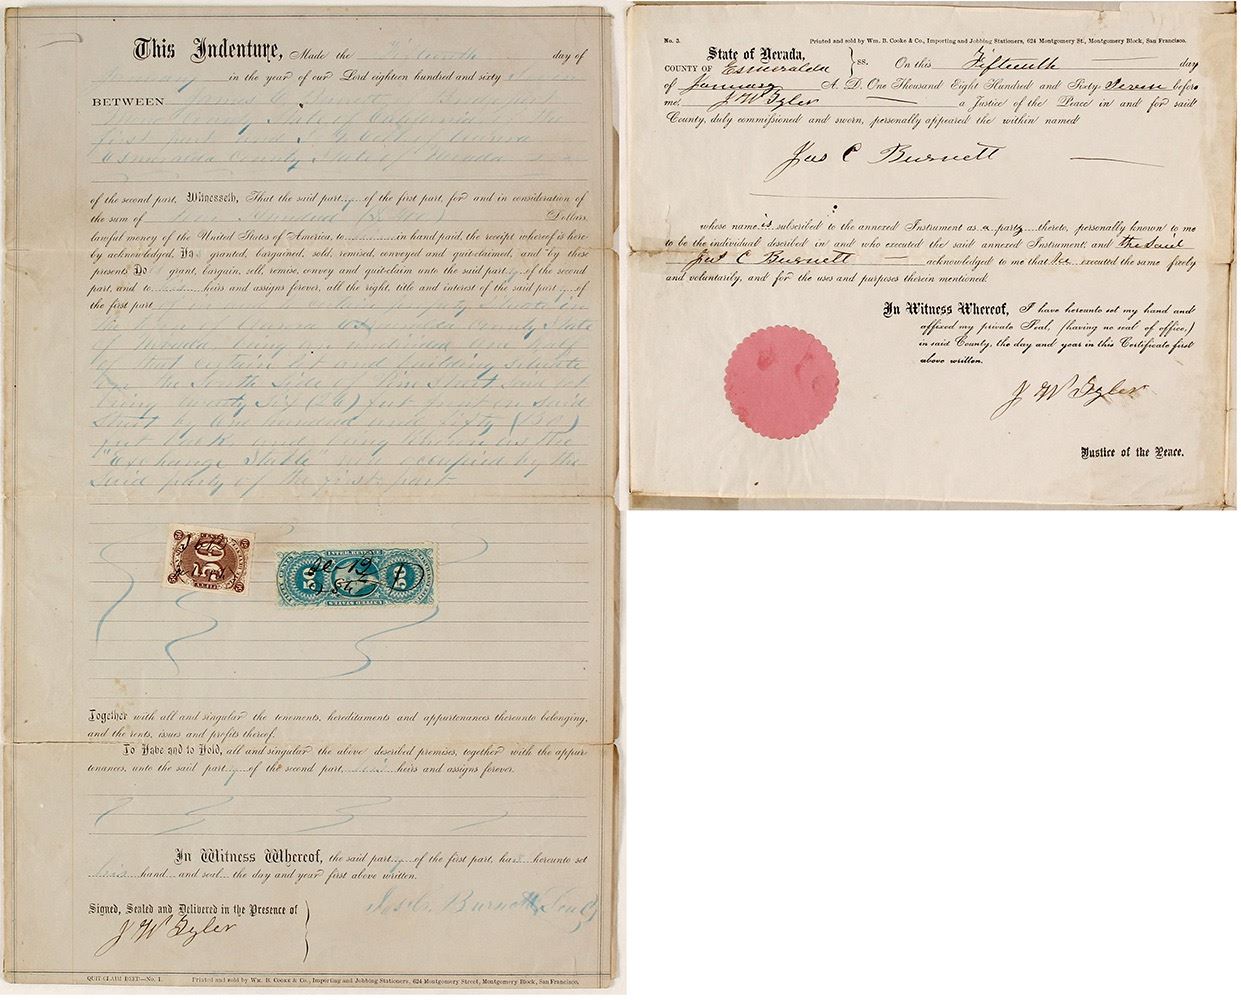 This Indenture, Made the day of
January in the year of our Lord eighteen hundred and sixty Seven
BETWEEN James C
Mono County State of California of the
first part and of Aurora
Esmeralda County State of Nevada
of the second part, Witnesseth, That the said party of the first part, for and in consideration of
the sum of Hundred Dollars,
lawful money of the United States of America, to in hand paid, the receipt whereof is here
by acknowledged, Has granted, bargained, sold, remised, conveyed and quit-claimed, and by these
presents, Do grant, bargain, sell, remise, convey and quit-claim unto the said party of the second
part, and to his heirs and assigns forever, all the right, title and interest of the said party of
the first part of in certain property situate in
the Town of Aurora Esmeralda County State
of Nevada being undivided one half
of that certain lot and building situate
on the South Side of Pine Street said lot
being twenty Six (26) feet front on said
Street by one hundred and fifty (150)
feet back and being known as the
"Exchange Stable" now occupied by the
said party of the first part
50
INTER. REVENUE
FIFTY CENTS
50
50
UNITED STATES
Together with all and singular the tenements, hereditaments and appurtenances thereunto belonging,
and the rents, issues and profits thereof.
To Have and to Hold, all and singular the above described premises, together with the appur-
tenances, unto the said party of the second part, his heirs and assigns forever.
In Witness Whereof, the said party of the first part, has hereunto set
his hand and seal the day and year first above written.
Signed, Sealed and Delivered in the Presence of
Jas C. Burnett
J W Tyler
QUIT-CLAIM DEED—No. 1. Printed and sold by Wm. B. Cooke & Co., Importing and Jobbing Stationers, 624 Montgomery Street, Montgomery Block, San Francisco.
No. 3. Printed and sold by Wm. B. Cooke & Co., Importing and Jobbing Stationers, 624 Montgomery St., Montgomery Block, San Francisco.
State of Nevada,
COUNTY OF Esmeralda } SS. On this Fifteenth day
of January A. D. One Thousand Eight Hundred and Sixty-Seven before
me, J W Tyler a Justice of the Peace in and for said
County, duly commissioned and sworn, personally appeared the within named
Jas C Burnett
whose name is subscribed to the annexed Instrument as a party thereto, personally known to me
to be the individual described in and who executed the said annexed Instrument; and the said
Jas C Burnett acknowledged to me that he executed the same freely
and voluntarily, and for the uses and purposes therein mentioned.
In Witness Whereof, I have hereunto set my hand and
affixed my private Seal, (having no seal of office,)
in said County, the day and year in this Certificate first
above written.
J W Tyler
Justice of the Peace.